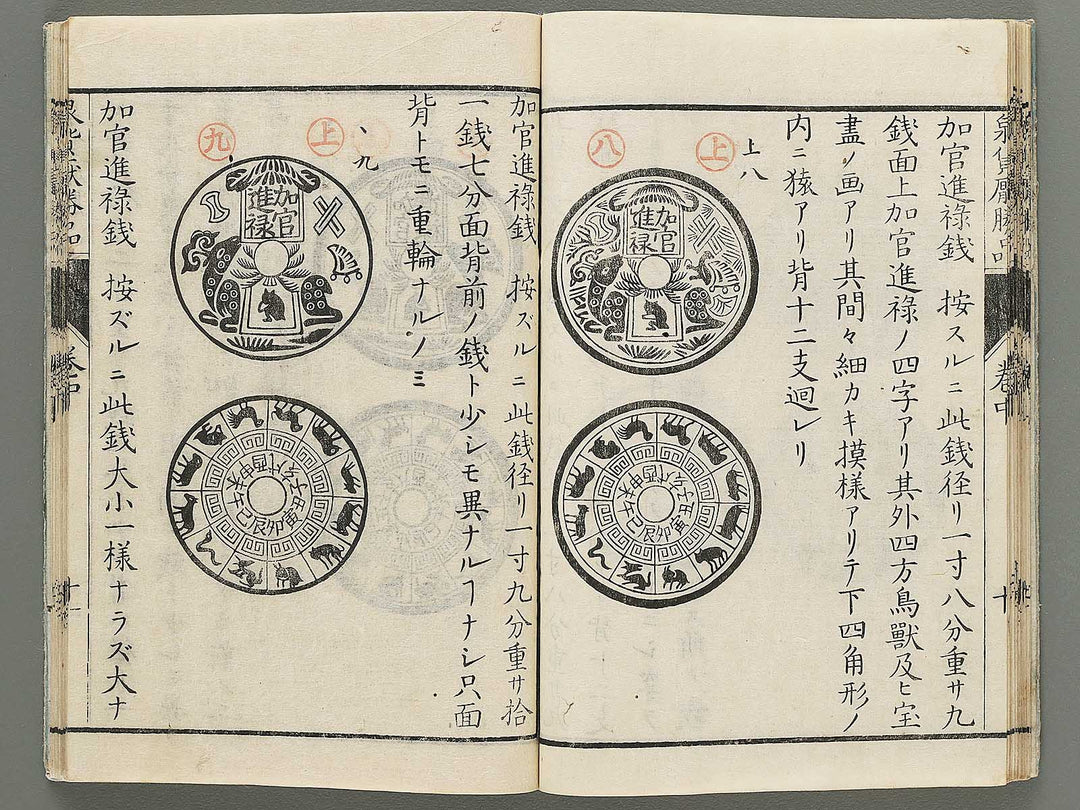 泉貨厭勝品
卷中
十
加官進祿銭 按スルニ此銭径リ一寸八分重サ九
銭面上加官進禄ノ四字アリ其外四方鳥獸及ヒ宝
盡ノ画アリ其間々細カキ摸様アリテ下四角形ノ
内ニ猿アリ背十二支迴レリ
上八
上
八
加官
進禄
子丑寅卯辰巳午未申酉戌亥
加官進祿銭 按ズルニ此銭径リ一寸九分重サ拾
一銭七分面背前ノ銭ト少シモ異ナルヿナシ只面
背トモニ重輪ナルノミ
、九
上
九
加官
進禄
子丑寅卯辰巳午未申酉戌亥
加官進祿銭 按ズルニ此銭大小一様ナラズ大ナ
卷中
十一